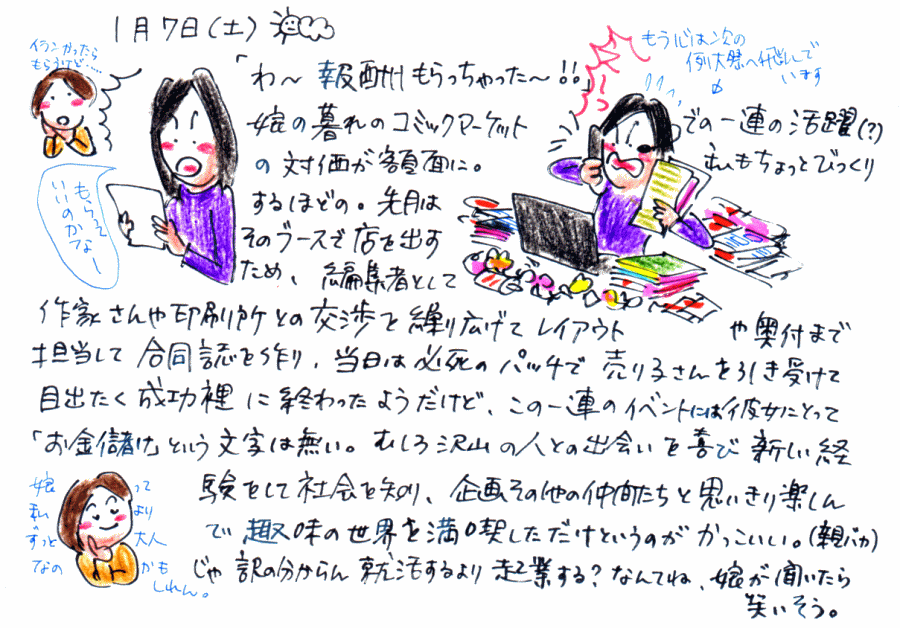 1月7日(土)
イランかったら
もらうけど…
「わ〜報酬もらっちゃった〜!!」
もう心は次の
例大祭へ飛んで
います
娘の暮れのコミックマーケット
での一連の活躍(?)
の対価が額面に。
私もちょっとびっくり
するほどの。先月は
もらって
いいのかなー
そのブースで店を出す
ため、編集者として
作家さんや印刷所との交渉を繰り広げてレイアウト
や奥付まで
担当して合同誌を作り、当日は必死のパッチで売り子さんを引き受けて
目出たく成功裡に終わったようだけど、この一連のイベントには彼女にとって
「お金儲け」という文字は無い。むしろ沢山の人との出会いを喜び新しい経
験をして社会を知り、企画その他の仲間たちと思いきり楽しん
で趣味の世界を満喫しただけというのがかっこいい。(親バカ)
娘って
私より
ずっと大人
なのかも
しれん。
じゃ訳の分からん就活するより起業する?なんてね、娘が聞いたら
笑いそう。